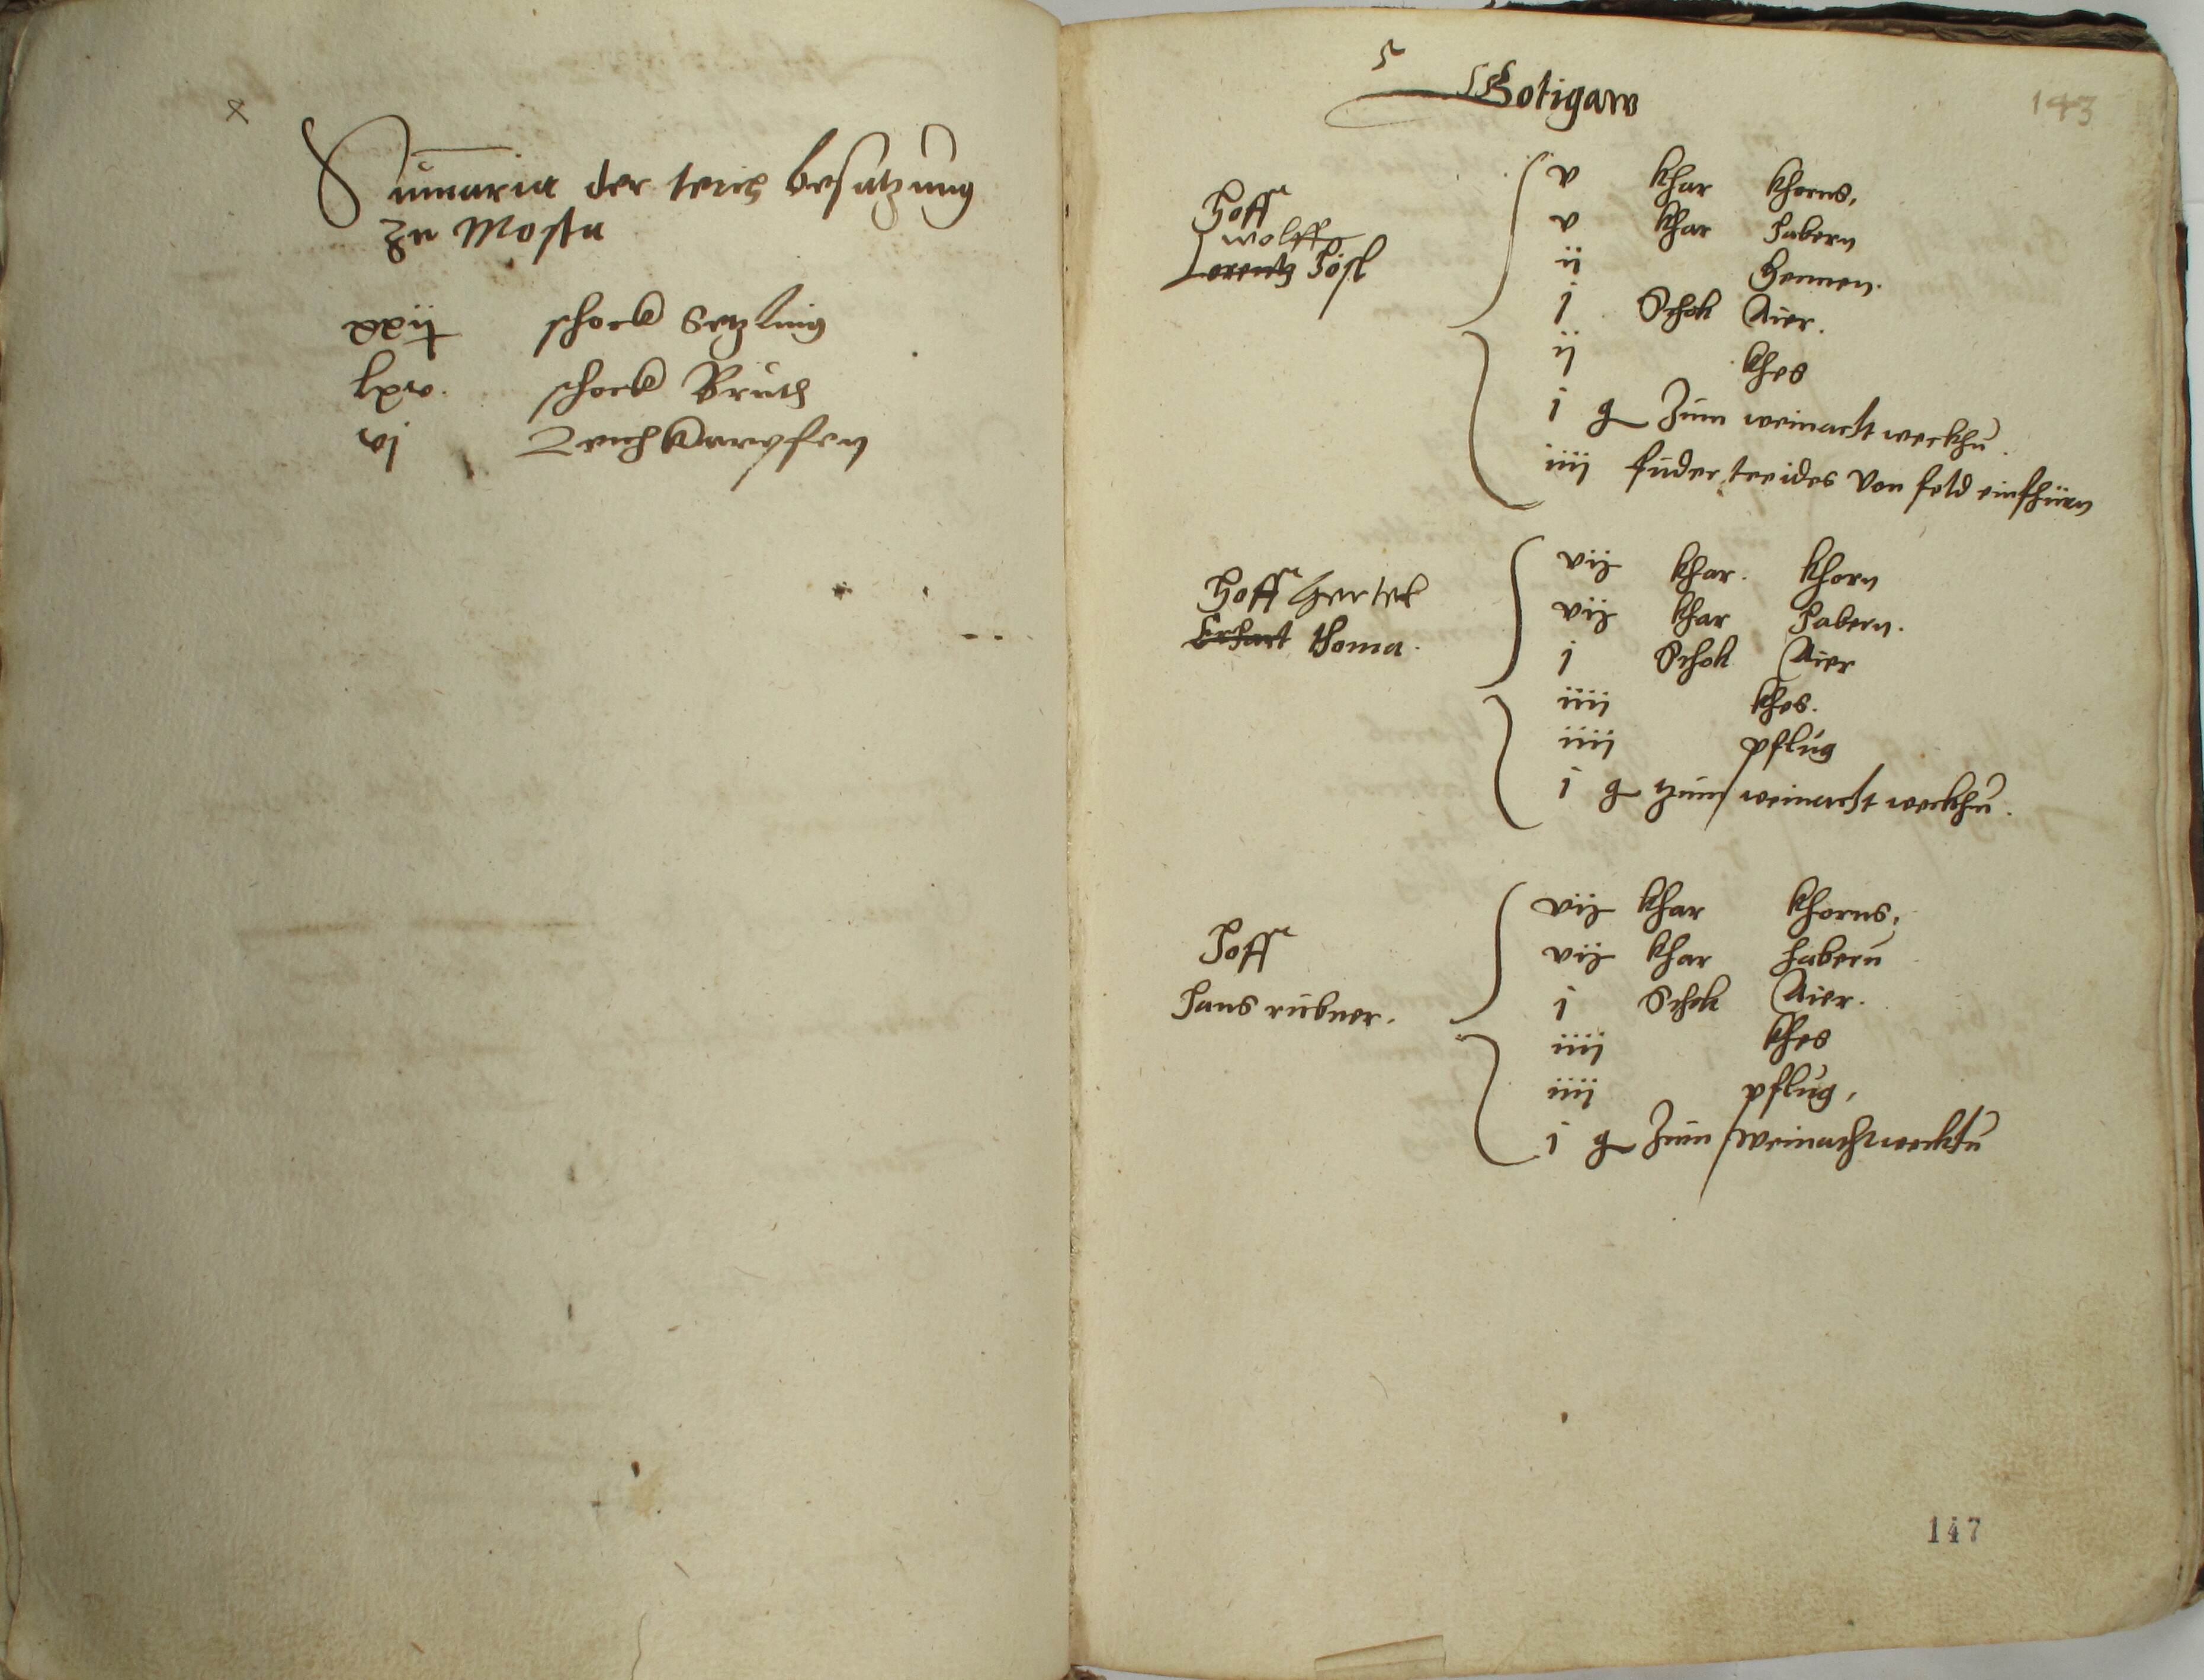 Sumaria der teich besatzung
zu Mosta
schock Setzling
lxv. schock Bruth
Teichkarpfen
Botigaw
143
Hoff
wolff
Lorentz Höfl
v khar khorns,
v khar habern
ij Hennen.
j Schok Aier.
ij khes
j g zum weinacht weckhu
iiij fuder treides von feld einfhürn
Hoff Hertel
Erhart thoma.
vij khar. khorn
vij khar habern.
j Schok Aier
iiij khes.
iiij pflug
j g tzum weinacht weckhu.
Hoff
Hans rübner.
vij khar khorns,
vij khar habern
j Schok Aier.
iiij khes
iiij pflug,
j g zum weinacht weckhu
147